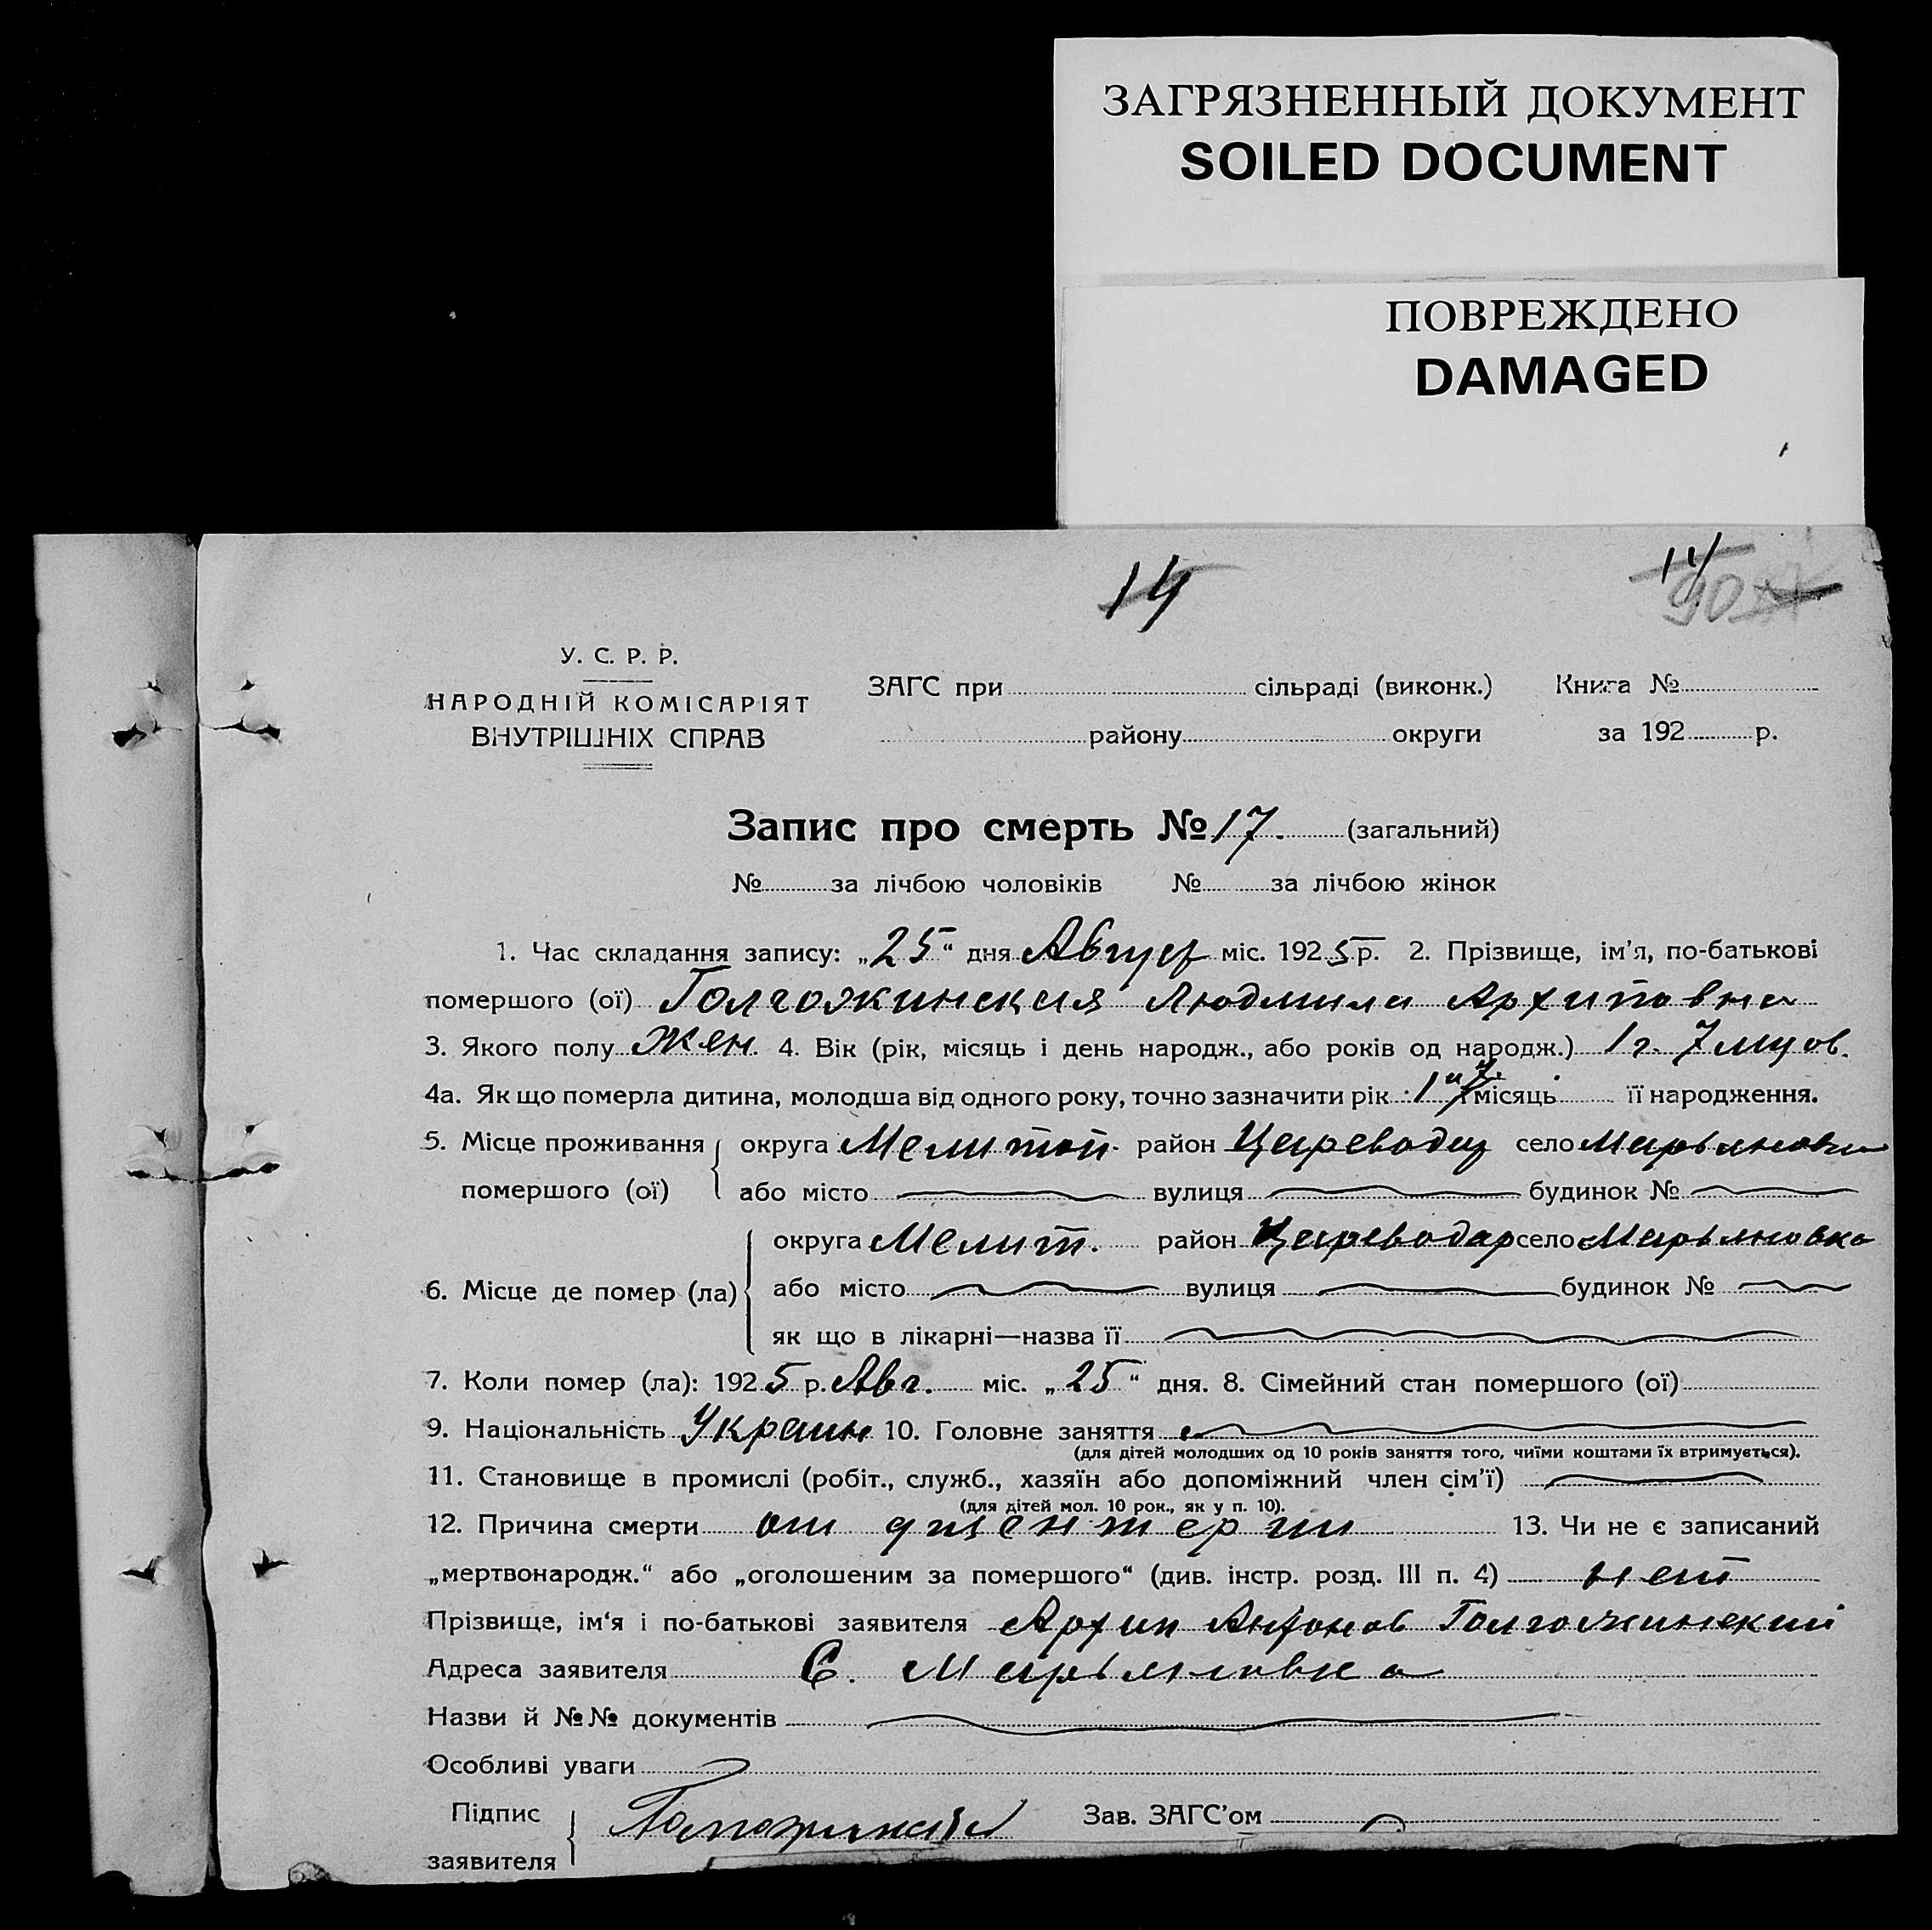 ЗАГРЯЗНЕННЫЙ ДОКУМЕНТ
SOILED DOCUMENT
ПОВРЕЖДЕНО
DAMAGED
14
14
90
У. С. Р. Р.
НАРОДНІЙ КОМІСАРІЯТ
ВНУТРІШНІХ СПРАВ
ЗАГС при сільраді (виконк.) Книга №
району округи за 192 р.
Запис про смерть № 17. (загальний)
№ за лічбою чоловіків № за лічбою жінок
1. Час складання запису: „25“ дня Август міс. 1925 р. 2. Прізвище, ім'я, по-батькові
помершого (ої) Голгожинская Людмила Архиповна
3. Якого полу Жен. 4. Вік (рік, місяць і день народж., або років од народж.) 1 г. 7 мцов.
4а. Як що померла дитина, молодша від одного року, точно зазначити рік 1 и 7. місяць її народження.
5. Місце проживання округа Мелитоп. район село Марьяновка
помершого (ої) або місто вулиця будинок №
округа Мелит. район Цареводар село Марьяновка
6. Місце де помер (ла) або місто вулиця будинок №
як що в лікарні—назва її
7. Коли помер (ла): 1925 р. Авг. міс. „25“ дня. 8. Сімейний стан помершого (ої)
9. Національність Украин 10. Головне заняття
(для дітей молодших од 10 років заняття того, чиїми коштами їх втримується).
11. Становище в промислі (робіт., служб., хазяїн або допоміжний член сім'ї)
(для дітей мол. 10 рок., як у п. 10).
12. Причина смерти от дизентерии 13. Чи не є записаний
„мертвонародж.“ або „оголошеним за помершого“ (див. інстр. розд. III п. 4) нет
Прізвище, ім'я і по-батькові заявителя Архип Антонов Голгожинский
Адреса заявителя С. Марьяновка
Назви й №№ документів
Особливі уваги
Підпис Зав. ЗАГС'ом
заявителя